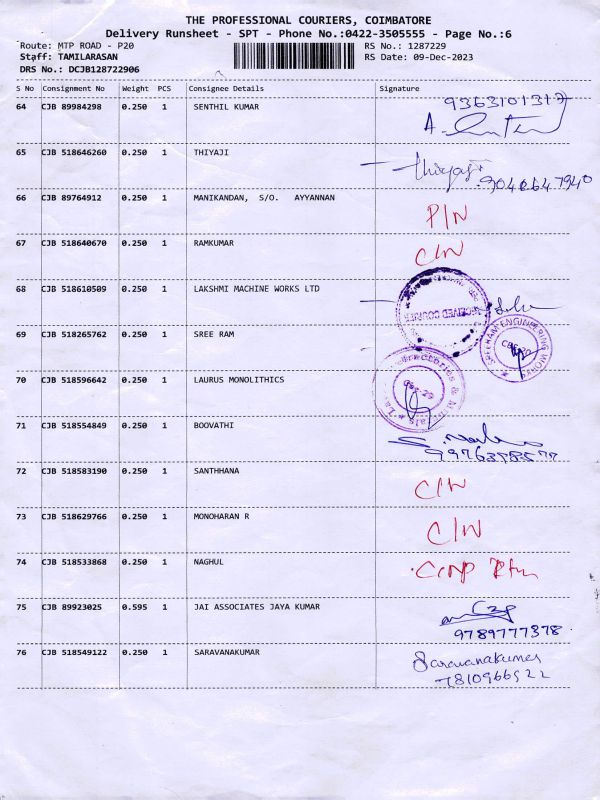 THE PROFESSIONAL COURIERS, COIMBATORE
Delivery Runsheet - SPT - Phone No.:0422-3505555 - Page No.:6
Route: MTP ROAD - P20 RS No.: 1287229
Staff: TAMILARASAN RS Date: 09-Dec-2023
DRS No.: DCJB128722906
S No Consignment No Weight PCS Consignee Details Signature
64 CJB 89984298 0.250 1 SENTHIL KUMAR 9363101317
A.
65 CJB 518646260 0.250 1 THIYAJI Thiyaji
9042647940
66 CJB 89764912 0.250 1 MANIKANDAN, S/O. AYYANNAN P/N
67 CJB 518640670 0.250 1 RAMKUMAR C/N
68 CJB 518610509 0.250 1 LAKSHMI MACHINE WORKS LTD
RECEIVED COURIER
69 CJB 518265762 0.250 1 SREE RAM SREERAM ENGINEERING WORKS
CBE-29
70 CJB 518596642 0.250 1 LAURUS MONOLITHICS
CBE-29
71 CJB 518554849 0.250 1 BOOVATHI
72 CJB 518583190 0.250 1 SANTHHANA C/N
73 CJB 518629766 0.250 1 MONOHARAN R C/N
74 CJB 518533868 0.250 1 NAGHUL
75 CJB 89923025 0.595 1 JAI ASSOCIATES JAYA KUMAR
9789777378
76 CJB 518549122 0.250 1 SARAVANAKUMAR Saravanakumar
7810966522